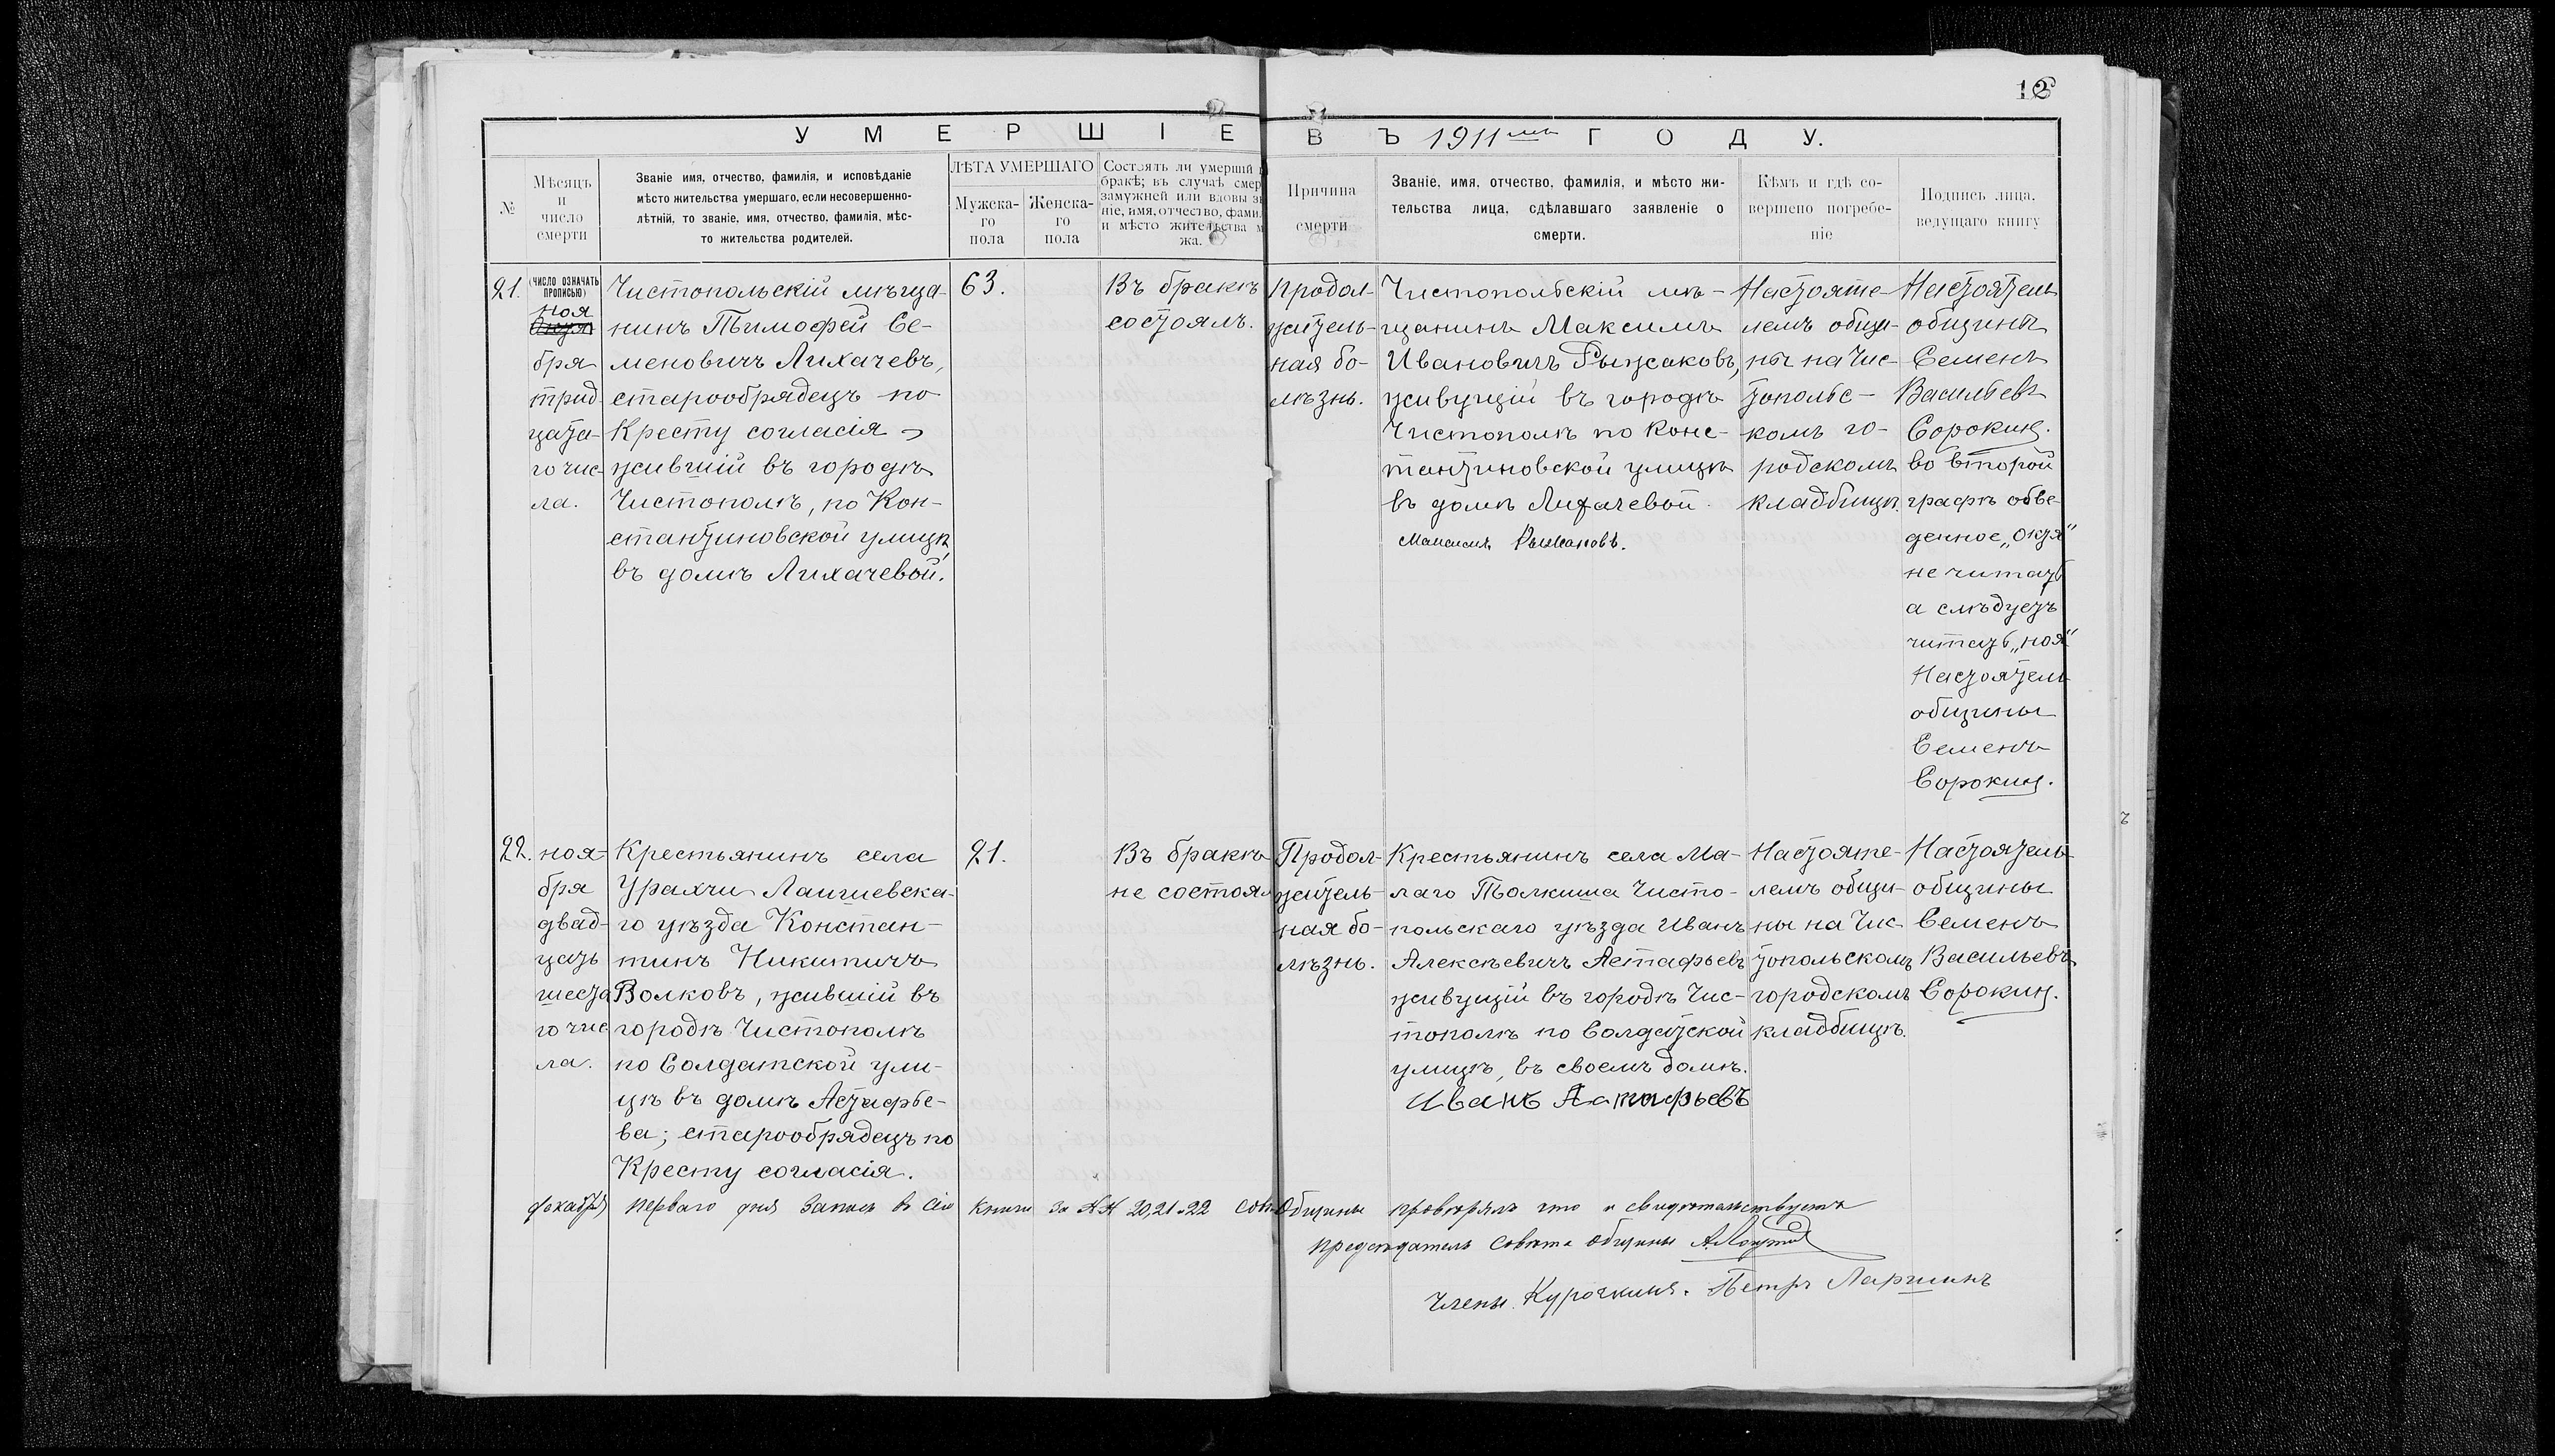 12
УМЕРШІЕ ВЪ 1911мъ ГОДУ.
№
Мѣсяцъ
и
число
смерти
Званіе имя, отчество, фамилія, и исповѣданіе
мѣсто жительства умершаго, если несовершенно-
лѣтній, то званіе, имя, отчество, фамилія, мѣс-
то жительства родителей.
ЛѢТА УМЕРШАГО
Мужска-
го
пола
Женска-
го
пола
Состоялъ ли умершій
бракѣ; въ случаѣ смер
замужней или вдовы зв
ніе, имя, отчество, фамил
и мѣсто жительства м
жа.
Причина
смерти
Званіе, имя, отчество, фамилія, и мѣсто жи-
тельства лица, сдѣлавшаго заявленіе о
смерти.
Кѣмъ и гдѣ со-
вершено погребе-
ніе
Подпись лица,
ведущаго книгу
21.
(ЧИСЛО ОЗНАЧАТЬ
ПРОПИСЬЮ)
ноя
Октя
бря
трид
цата-
го чис
ла.
Чистопольскій мѣща-
нинъ Тимофей Се-
меновичъ Лихачевъ,
старообрядецъ по
Кресту согласія
жившій въ городѣ
Чистополѣ, по Кон-
стантиновской улицѣ
въ домѣ Лихачевой.
63.
Въ бракѣ
состоялъ.
Продол-
житель-
ная бо-
лѣзнь.
Чистопольскій мѣ-
щанинъ Максимъ
Ивановичъ Рыжаковъ,
живущій въ городѣ
Чистополѣ по Конс-
тантиновской улицѣ
въ домѣ Лихачевой.
Максимъ Рыжаковъ.
Настояте-
лемъ общи-
ны на Чис-
топольс-
комъ го-
родскомъ
кладбищѣ.
Настоятель
общины
Семенъ
Васильевъ
Сорокинъ.
во второй
графѣ обве-
денное „октя“
не читать
а слѣдуетъ
читать „ноя“
Настоятель
общины
Семенъ
Сорокинъ.
22.
ноя-
бря
двад-
цать
шеста
го чис
ла.
Крестьянинъ села
Урахчи Лаишевска-
го уѣзда Констан-
тинъ Никитичъ
Волковъ, жившій въ
городѣ Чистополѣ
по Солдатской ули-
цѣ въ домѣ Астафье-
ва; старообрядецъ по
Кресту согласія.
21.
Въ бракѣ
не состоял
Продол-
житель-
ная бо-
лѣзнь.
Крестьянинъ села Ма-
лаго Толкиша Чисто-
польскаго уѣзда Иванъ
Алексѣевичъ Астафьевъ
живущій въ городѣ Чис-
тополѣ по Солдатской
улицѣ, въ своемъ домѣ.
Иванъ Астафьевъ
Настояте-
лемъ общи-
ны на Чис-
топольскомъ
городскомъ
кладбищѣ.
Настоятель
общины
Семенъ
Васильевъ
Сорокинъ.
декабря перваго дня запись въ сію книги за №№ 20, 21 и 22 Сов. Общины провѣрялъ что и свидѣтельствуетъ
председатель Совѣта общины
Члены. Курочкинъ. Петръ Ларшинъ